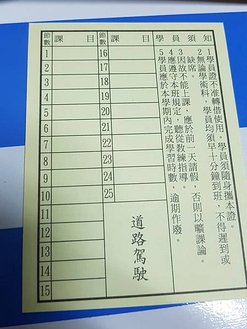 節數 課目 節數 課目
1 16
2 17
3 18
4 19
5 20
6 21
7 22
8 23
9 24
10 25
11
12
13
14
15
道路駕駛
學員須知
1學員證不准轉借使用。學員須隨身攜本證。
2無論學術科，學員均須早十分鐘到班，不得遲到或
缺席。
3因故不能上課，應於前一天請假，否則以曠課論。
4應遵守本班規定，聽從教練指導。
5學員應於本學期內完成學習時數，逾期作廢。